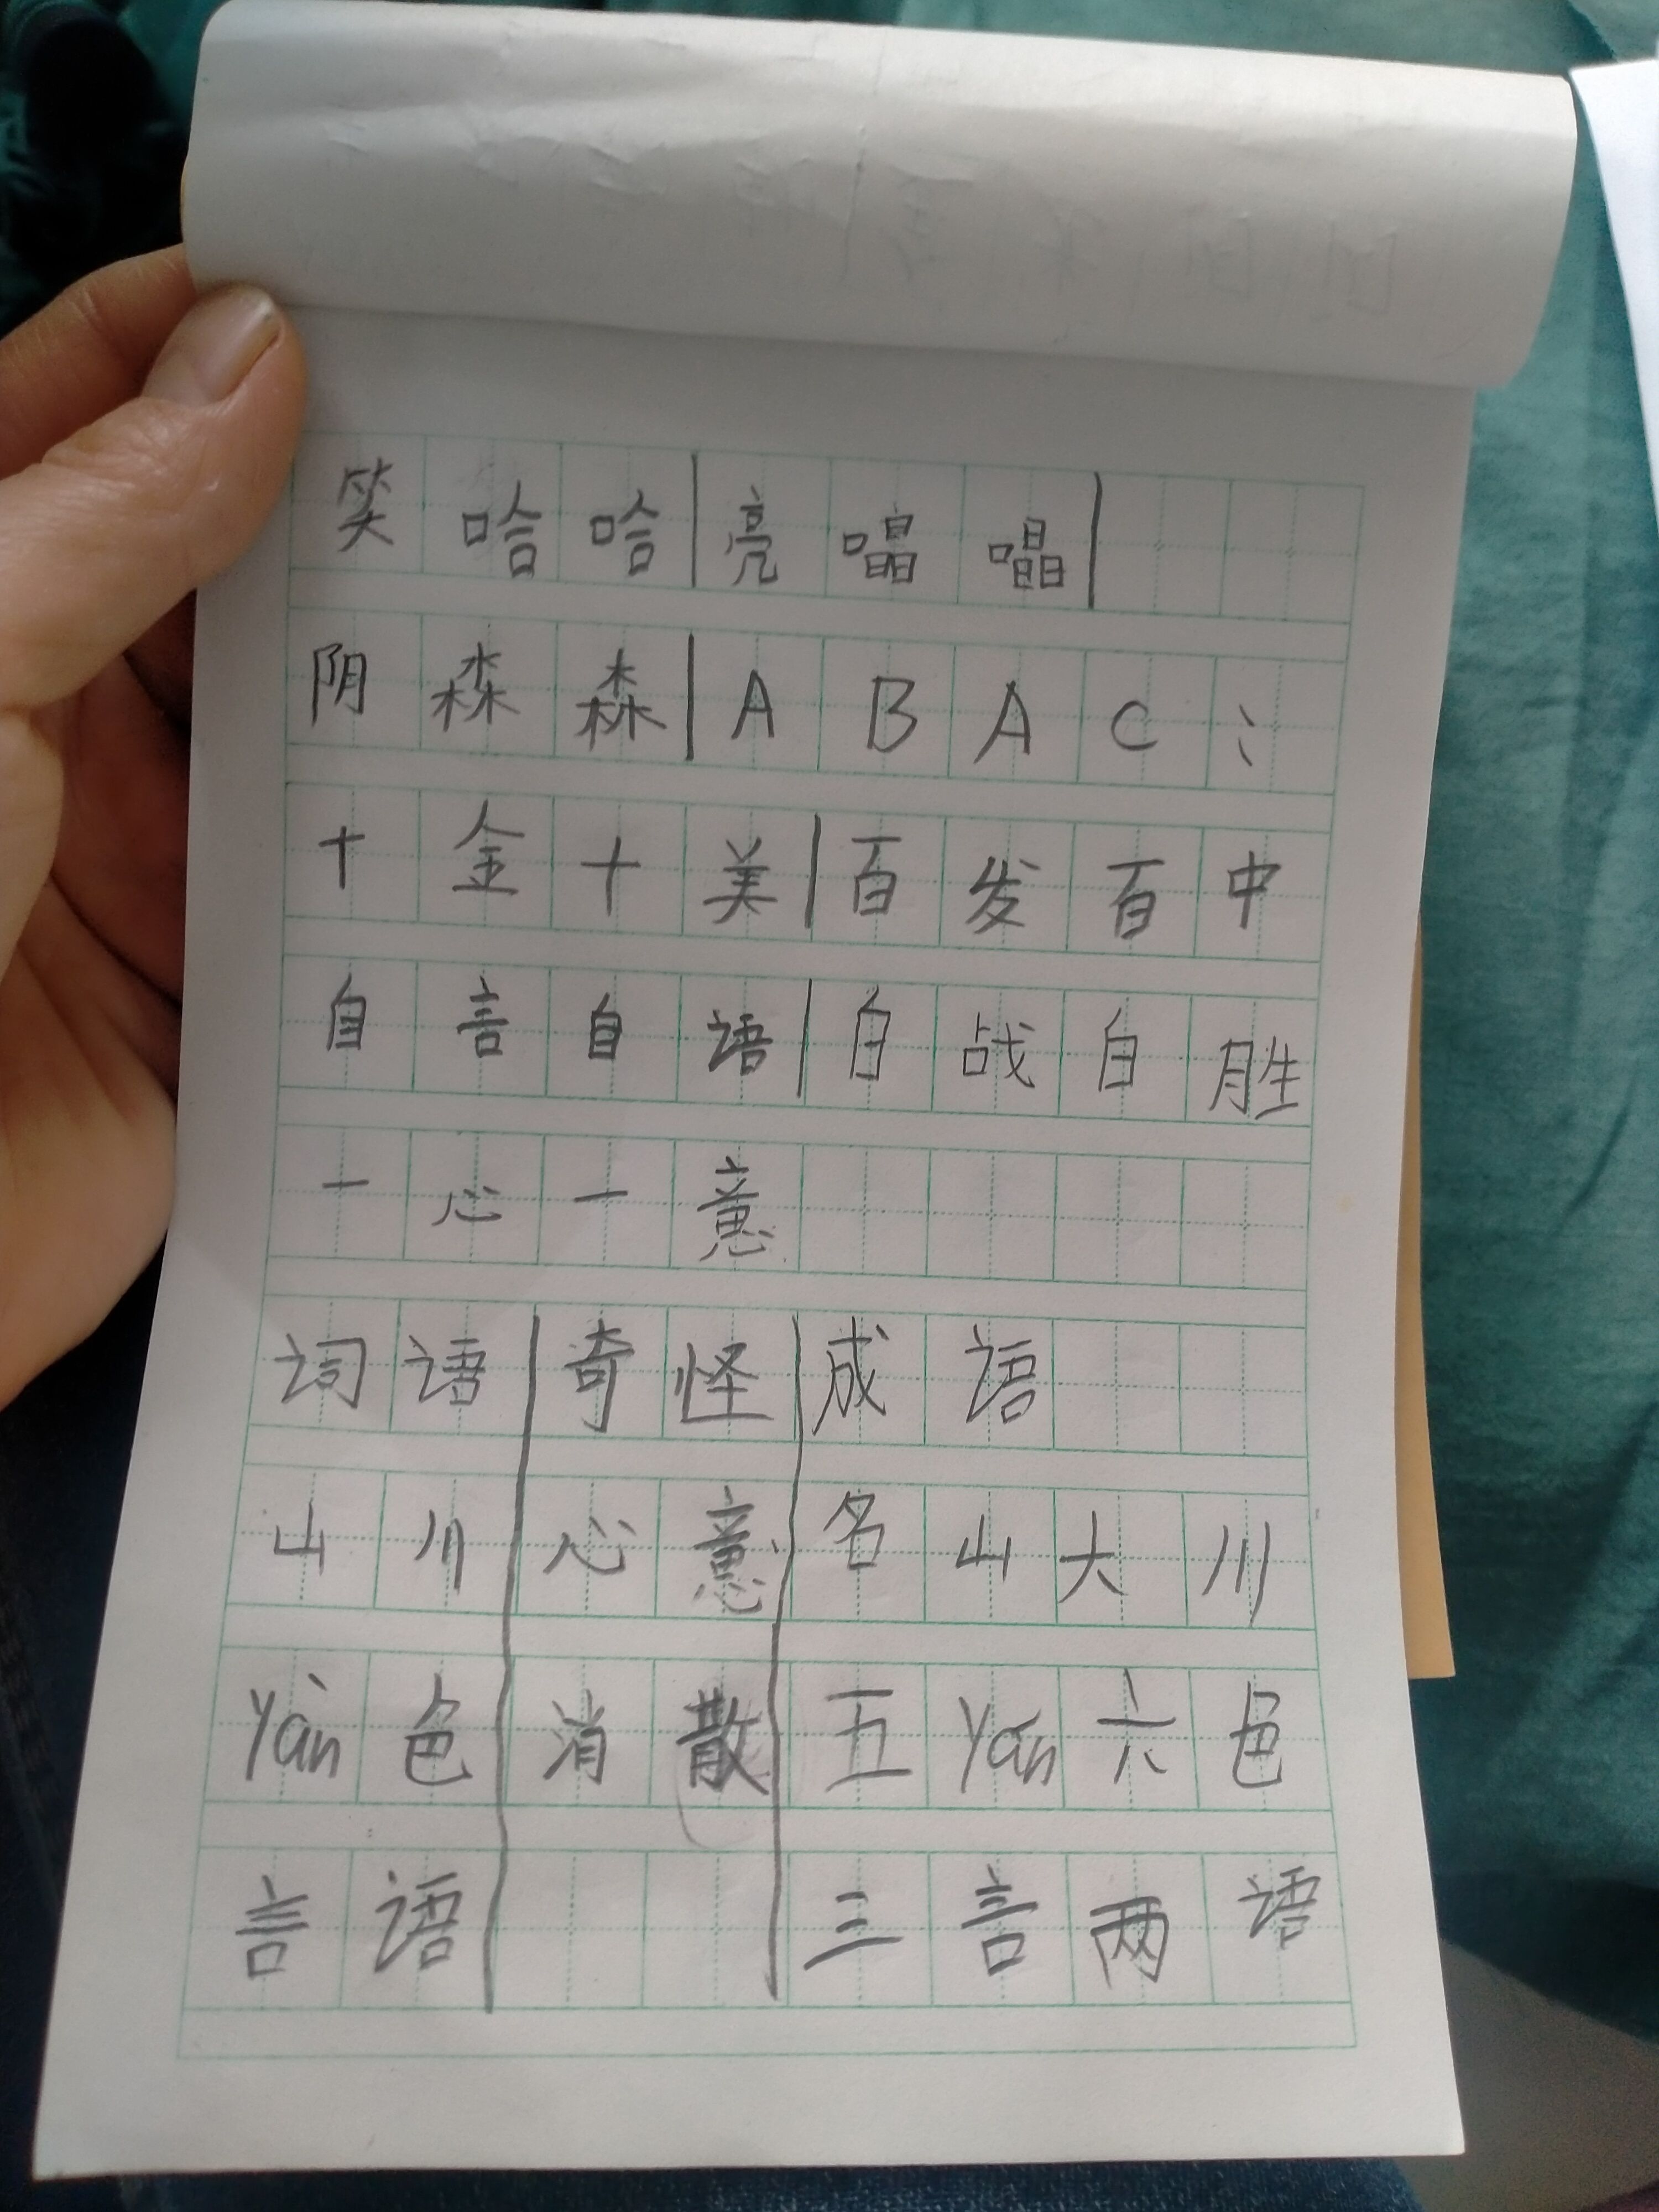 笑哈哈|亮噐噐|
阴森森|ABAC:
十金十美|百发百中
自言自语|自战自胜
一心一意
词语|奇怪|成语
山川|心意|名山大川
Yàn色|消散|五Yán六色
言语| |三言两语